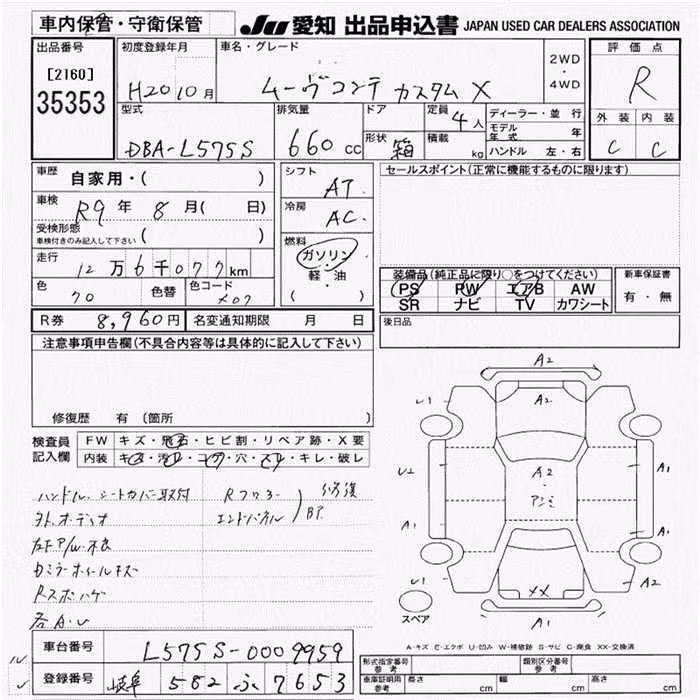 車内保管・守衛保管
JU 愛知 出品申込書 JAPAN USED CAR DEALERS ASSOCIATION
出品番号
[2160]
35353
初度登録年月
H20 10月
車名・グレード
ムーヴコンテ カスタム X
2WD
・
4WD
評価点
R
外装 内装
C C
型式
DBA-L575S
排気量
660 CC
ドア
形状 箱
定員 4人
積載 kg
ディーラー・並行
モデル年式 年
ハンドル 左・右
車歴
自家用・( )
車検
R9年 8月( 日)
受検形態
車検付きのみ記入して下さい ( )
走行
12万6千077km
色 色替 色コード
クロ X07
シフト
AT
冷房
AC
燃料
ガソリン
・
軽油
( )
セールスポイント(正常に機能するものに限ります)
装備品(純正品に限り○をつけてください)
PS PW エアB AW
SR ナビ TV カワシート
新車保証書
有・無
R券 8,960円 名変通知期限 月 日
後日品
注意事項申告欄(不具合内容等は具体的に記入して下さい)
修復歴 有 (箇所 )
検査員
記入欄
FW キズ・飛石・ヒビ割・リペア跡・X要
内装 キズ・汚れ・コゲ・穴・スレ・キレ・破レ
ハンドル、シートカバー取付
外、オーディオ
左F P/W
カミラ ホイールキズ
Rスポ ハゲ
各A・U
Rフロアー
エンドパネル
修復
BP
A2
A2
U1
U2
A2
アンミ
A1
A1
A1
U1
XX
A2
A1
スペア
A-キズ E-エクボ U-凹み W-補修跡 S-サビ C-腐食 XX-交換済
車台番号 L575S-0009959
登録番号 岐阜 582 ふ 7653
型式指定番号
参考
類別区分番号
参考
車庫証明用
参考
長さ cm 幅 cm 高さ cm